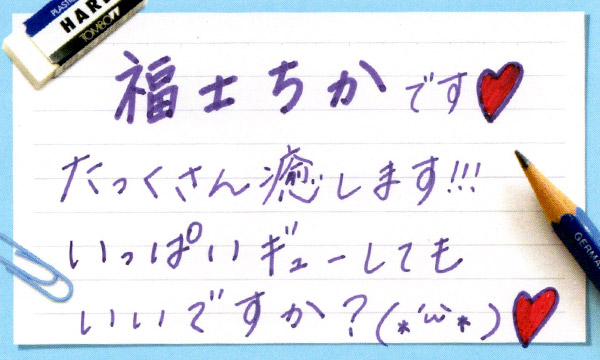 PLASTIC
HARD
TOMBOW
福士ちかです
たっくさん癒します!!!
いっぱいギューしても
いいですか?(*´ω`*)
GERMA